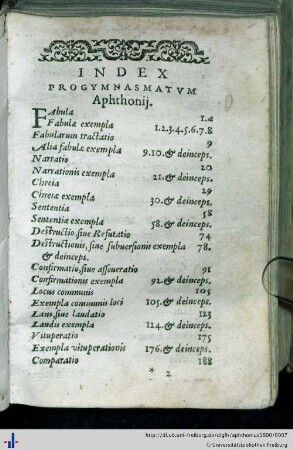 INDEX
PROGYMNASMATVM
Aphthonij.
FAbula 1.a
Fabulæ exempla 1.2.3.4.5.6.7.8
Fabularum tractatio 9
Alia fabulæ exempla 9.10.& deinceps.
Narratio 20
Narrationis exempla 21.& deinceps.
Chreia 29
Chreiæ exempla 30.& deinceps.
Sententia 58
Sententiæ exempla 58.& deinceps.
Destructio, siue Refutatio 74
Destructionis, siue subuersionis exempla 78.
& deinceps.
Confirmatio, siue asseueratio 91
Confirmationis exempla 92.& deinceps.
Locus communis 105
Exempla communis loci 105.& deinceps.
Laus, siue laudatio 123
Laudis exempla 124.& deinceps.
Vituperatio 175
Exempla vituperationis 176.& deinceps.
Comparatio 188
* 2
http://dl.ub.uni-freiburg.de/diglit/aphthonius1600/0007
© Universitätsbibliothek Freiburg